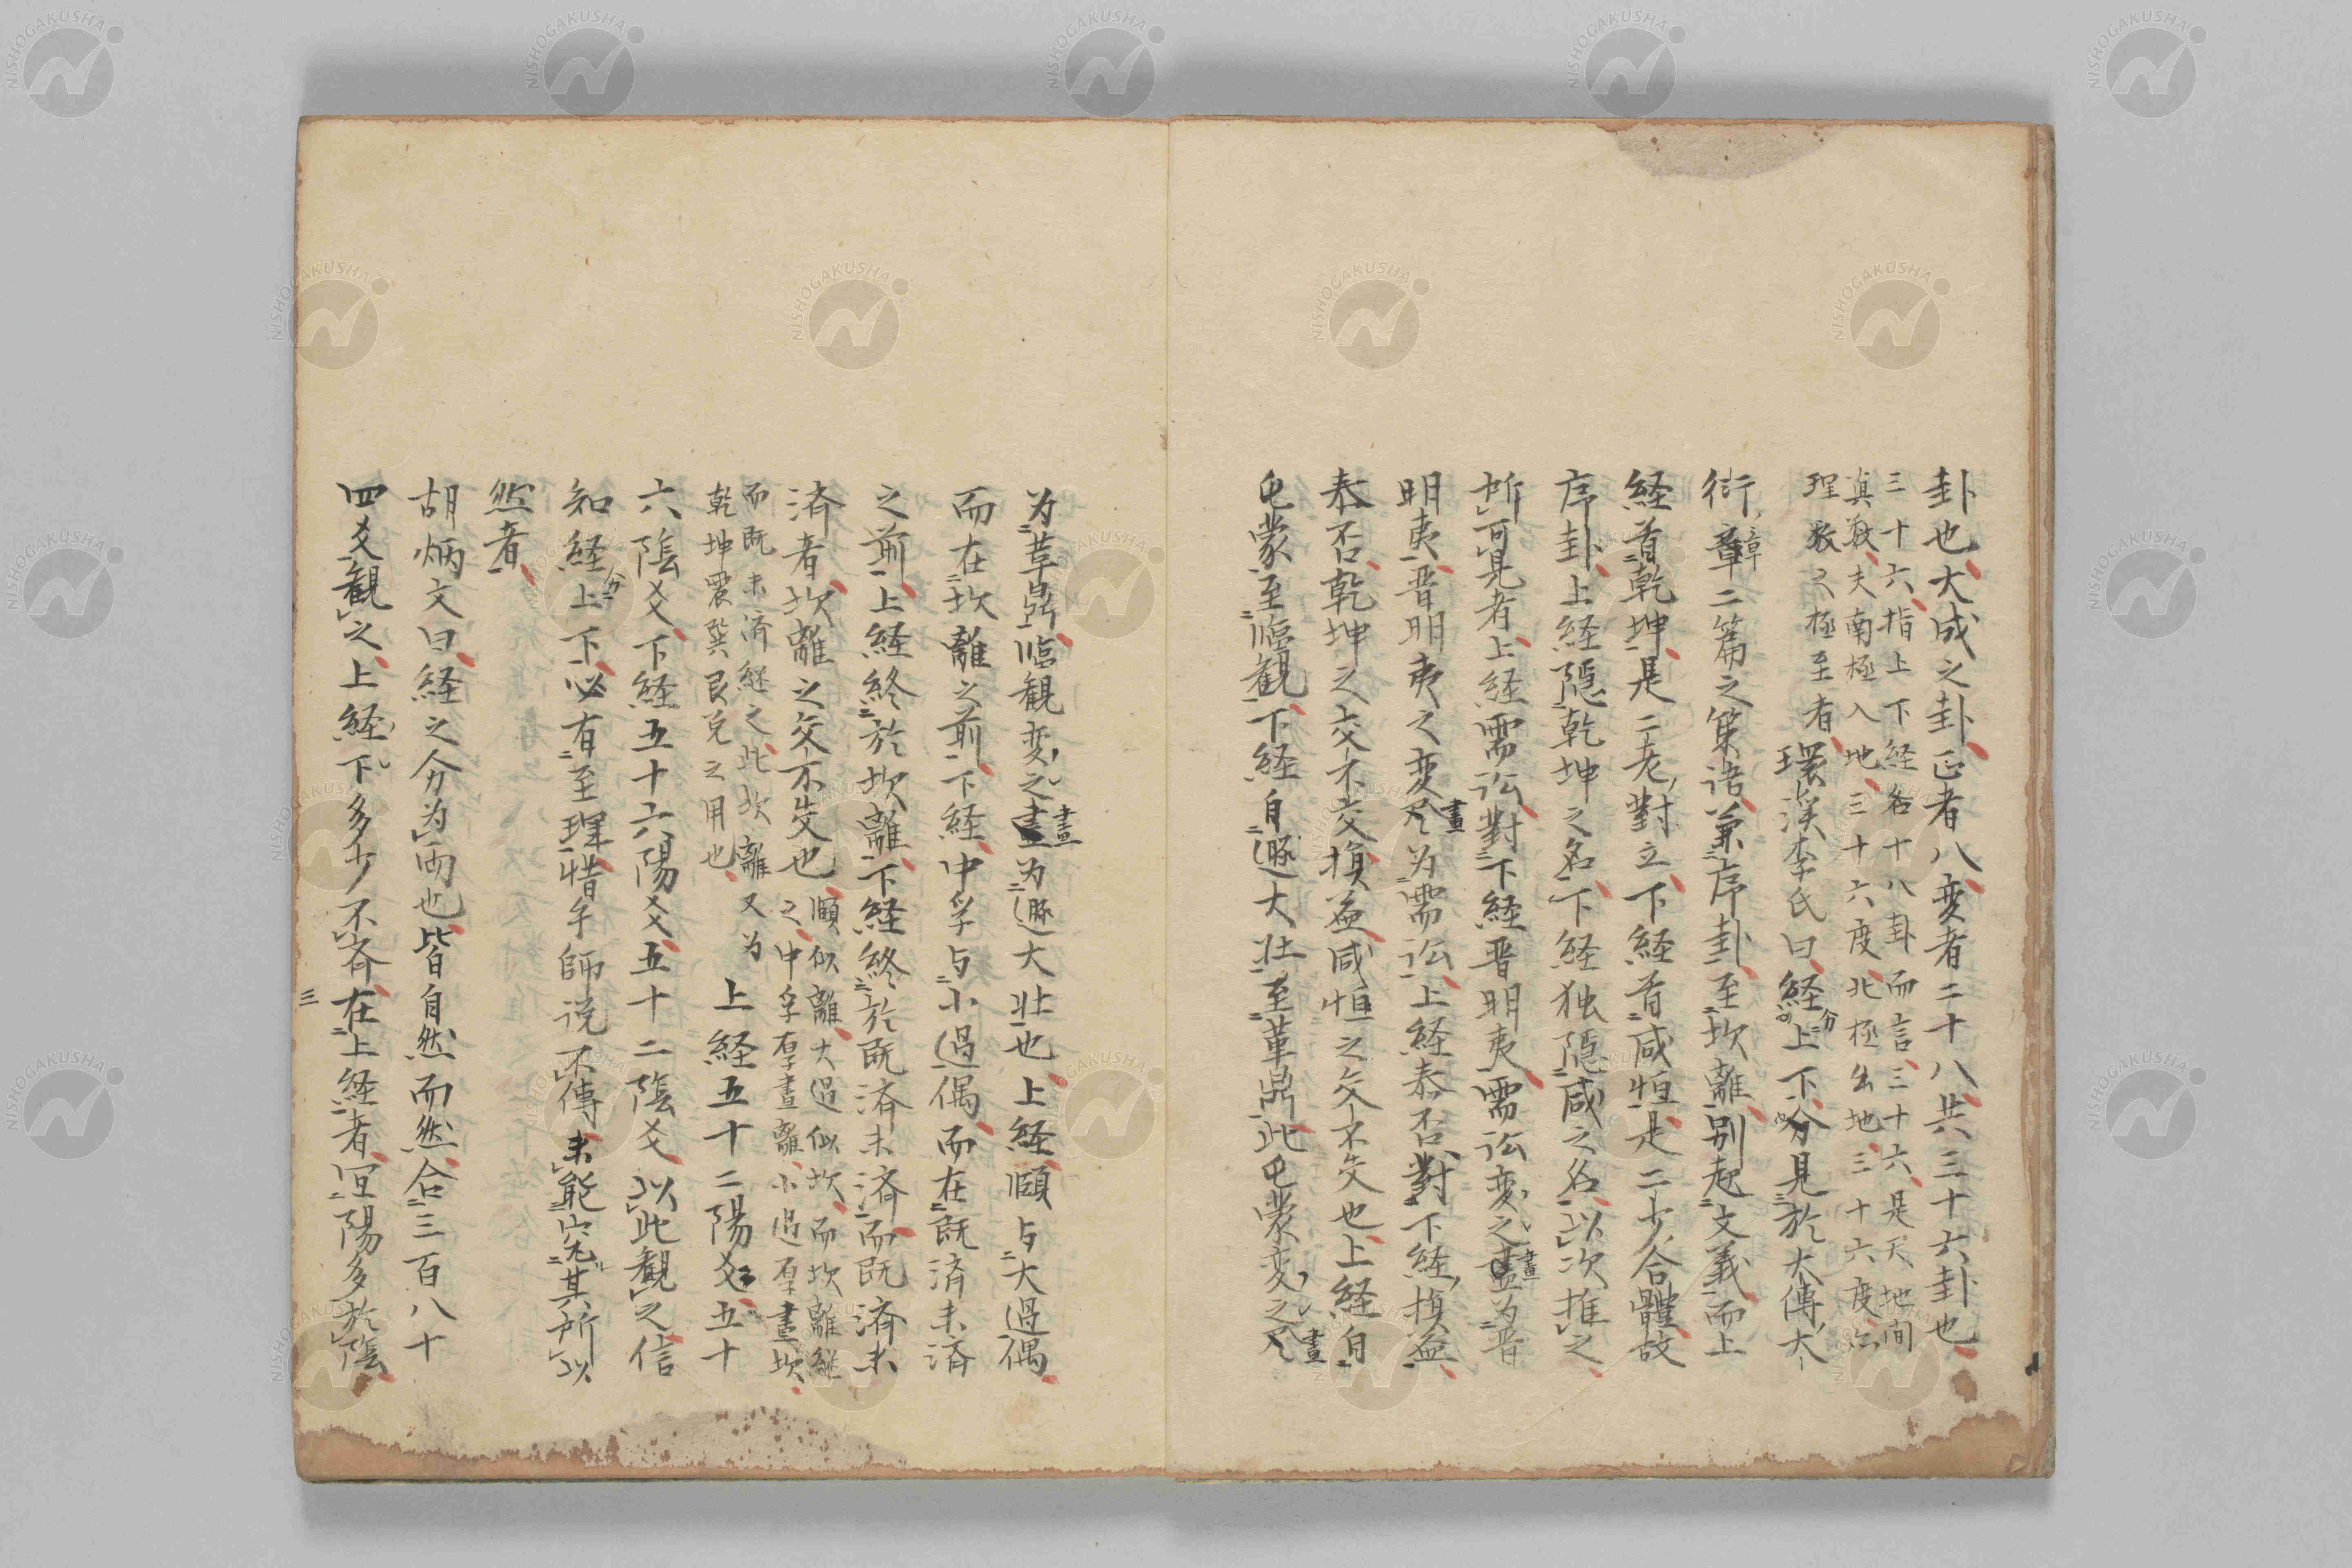 卦也大成之卦正者八変者二十八共三十六卦也
三十六指上下経各十八卦而言三十六是天地间
真数夫南極入地三十六度北極出地三十六度亦
理数之極至者
環溪李氏曰経上下分見於大傳大
衍章二篇之策語兼序卦至坎離別起文義而上
経首乾坤是二老對立下経首咸恒是二少合體故
序卦上経隠乾坤之名下経独隠咸之名以次推之
所可見者上経需訟對下経晋明夷需訟変之畫为晋
明夷晋明夷之変畫为需訟上経泰否對下経損益
泰否乾坤之交不交損益咸恒之交不交也上経自
屯蒙至臨観下経自遯大壮至革鼎此屯蒙変之畫
为革鼎臨観変之畫为遯大壮也上経頤与大過偶
而在坎離之前下経中孚与小過偶而在既済未済
之前上経終於坎離下経終於既済未済而既済未
済者坎離之交不交也
頤似離大過似坎而坎離継
之中孚厚畫離小過厚畫坎
而既未済継之此坎離又为
乾坤震巽艮兌之用也
上経五十二陽爻五十
六陰爻下経五十六陽爻五十二陰爻以此観之信
知経分上下必有至理惜乎師说不傳未能究其所以
然者
胡炳文曰経之分为両也皆自然而然合三百八十
四爻観之上経下多少不斉在上経者宜陽多於陰
三
NISHOGAKUSHA